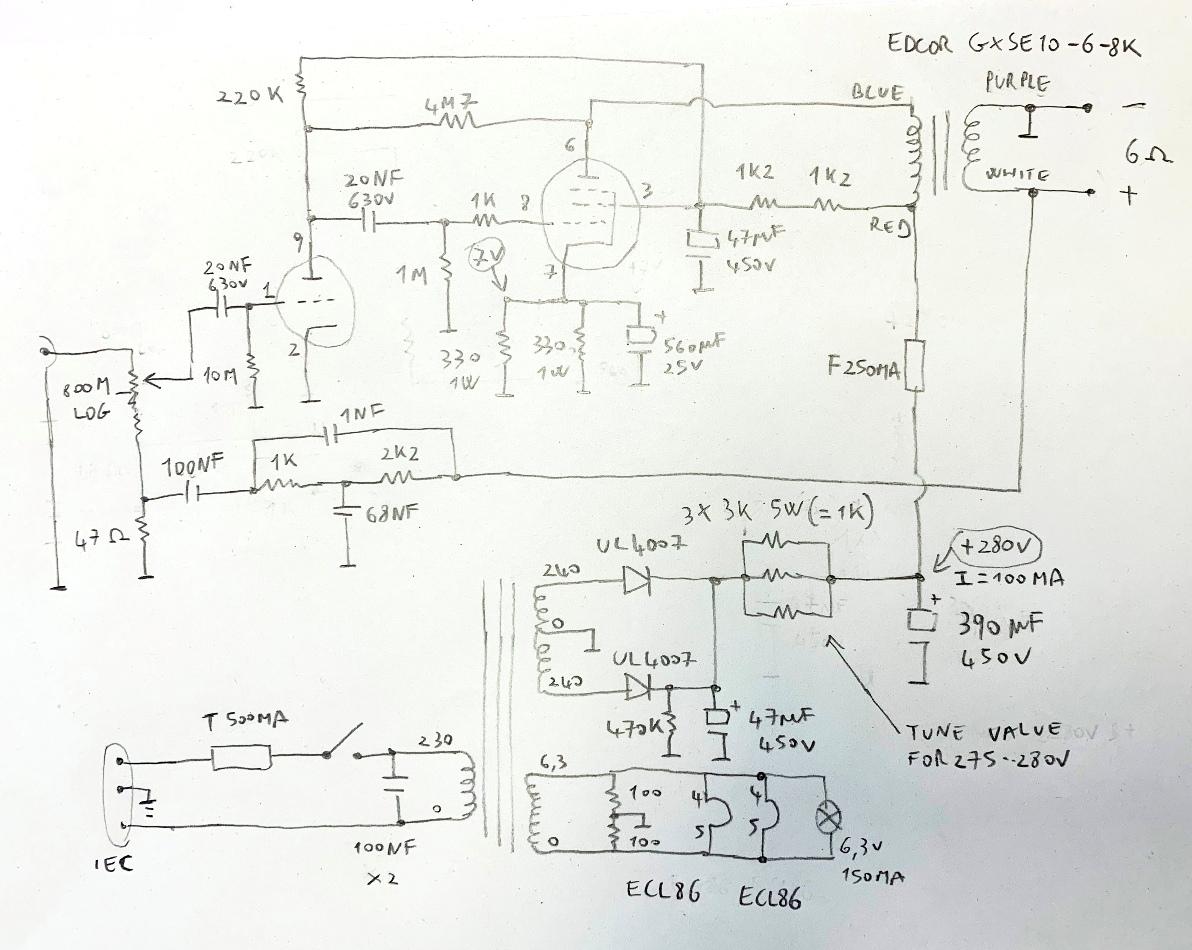 EDCOR GXSE10-6-8K
PURPLE
BLUE
220K
4M7
6
−
6Ω
WHITE
+
20NF
630V
1K
8
3
1K2
1K2
RED
9
7V
7
1M
47µF
450V
20NF
630V
1
2
10M
800M
LOG
330
1W
330
1W
+
560µF
25V
F250MA
1NF
100NF
1K
2K2
47Ω
68NF
3X 3K 5W (=1K)
UL4007
+280V
I=100MA
240
0
+
390µF
450V
UL4007
240
470K
+
47µF
450V
TUNE VALUE
FOR 275--280V
T 500MA
230
0
6,3
100
4
4
5
5
100
0
6,3V
150MA
IEC
100NF
X2
ECL86
ECL86